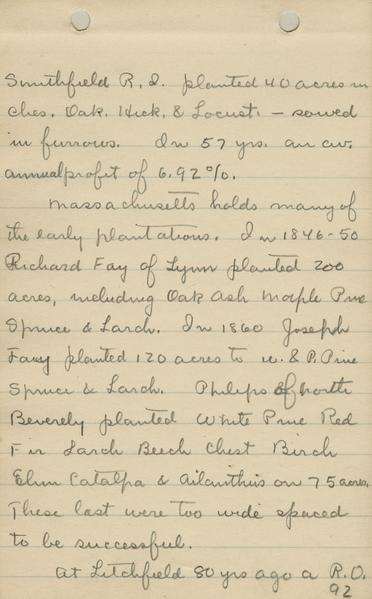 Smithfield R.I. planted 40 acres in
Ches. Oak. Hick. & Locust. — sowed
in furrows. In 57 yrs. an av.
annual profit of 6.92%.
Massachusetts holds many of
the early plantations. In 1846-50
Richard Fay of Lynn planted 200
acres, including Oak Ash Maple Pine
Spruce & Larch. In 1860 Joseph
Fay planted 120 acres to w. & P. Pine
Spruce & Larch. Philips of North
Beverely planted White Pine Red
Fir Larch Beech Chest Birch
Elm Catalpa & Ailanthus on 75 acres.
These last were too wide spaced
to be successful.
At Litchfield 80 yrs ago a R.O.
92